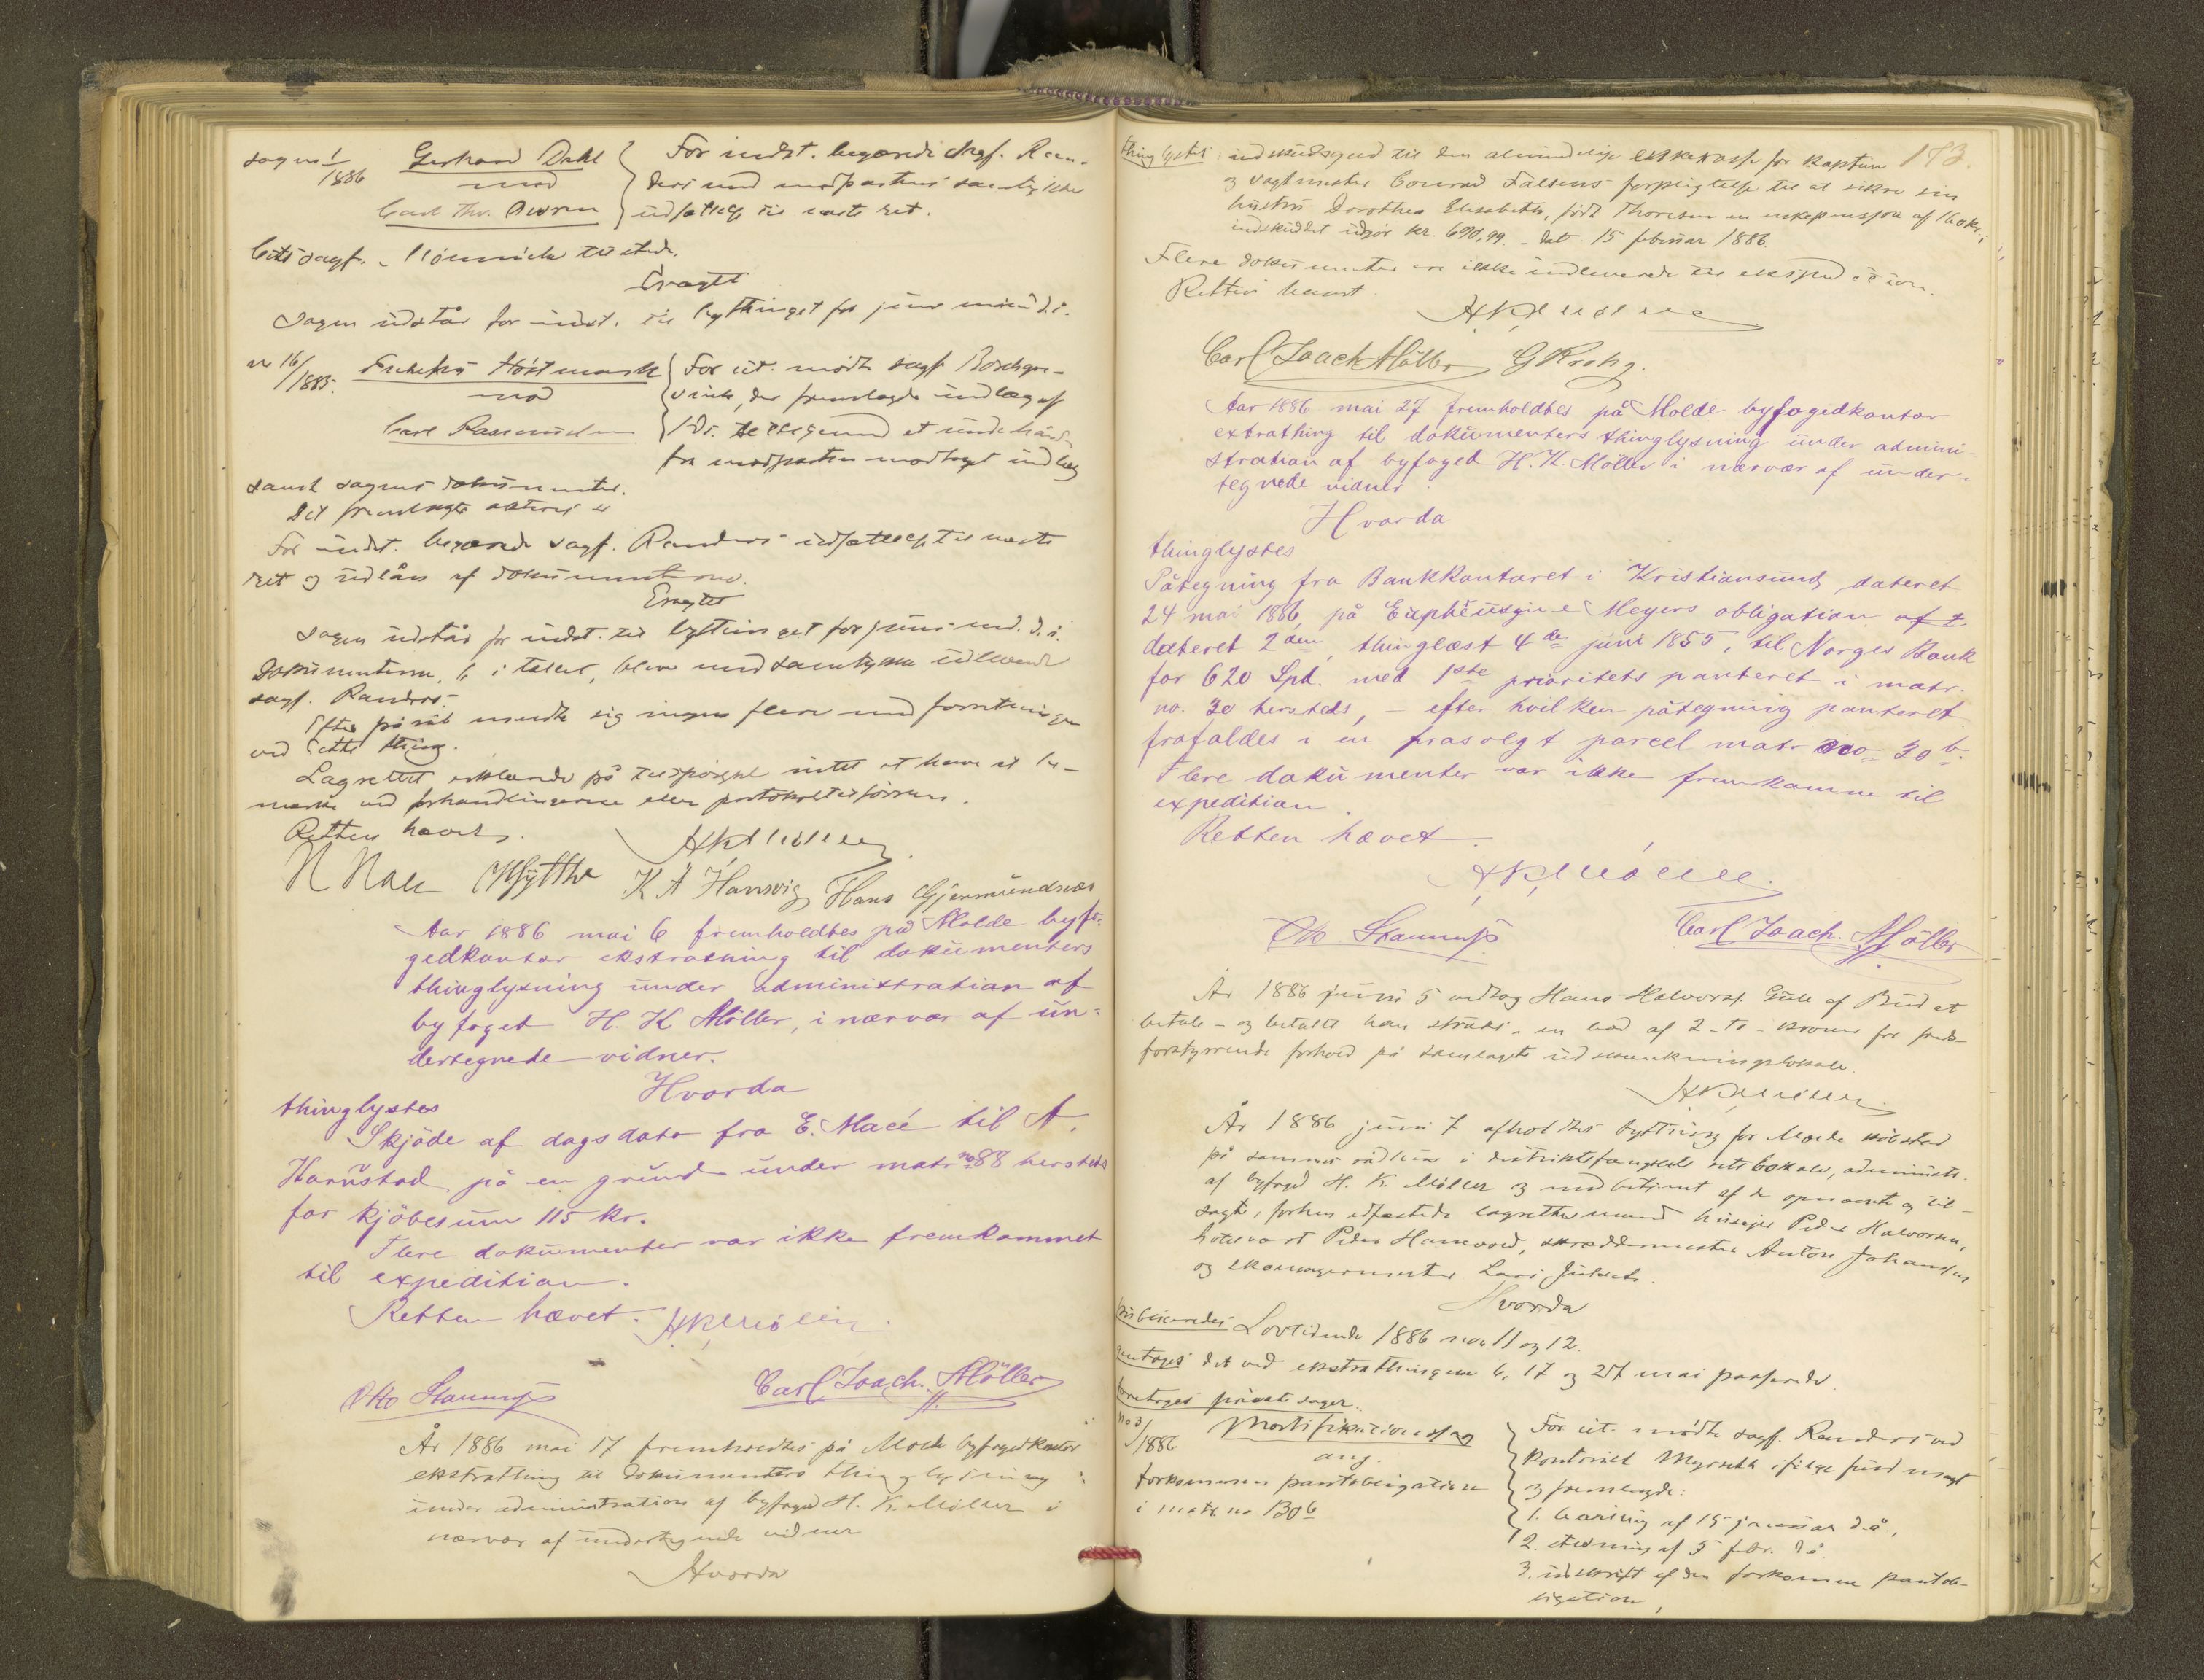 sag no 1/1886 Gerhard Dahl
mod
Carl Thv. Owren
For indst. begærede sagf. Ran-
ders med modpartens samtykke
udsættelse til næste ret.
sagf. tilstede.
Eragtet
Sagen udstår for indst. til bythinget for juni måned d. å.
no 16/1885. Høstmark
mod
Carl Rasmussen
For cit. mødte sagf. Borchgre-
vink, der fremlagde indlæg af
et underhånden
fra modparten modtaget indlæg
samt sagens dokumenter.
Det fremlagte
For indst. begærede sagf. Randers udsættelse til næste
ret og udlån af dokumenterne.
Eragtet
Sagen udstår for indst. til bythinget for juni md. d. å.
Dokumenterne, 6 i tallet, blev med samtykke udleveret
sagf. Randers.
Efter påråb meldte sig ingen flere med forretninger
ved dette thing.
Lagrettet erklærede på tilspørgsel intet at have at be-
mærke ved forhandlingerne eller protokoltilførselen.
Retten hævet.
HKMøller
K A Hansvig Hans Gjermundnæs
Aar 1886 mai 6 fremholdtes på Molde byfo-
gedkontor ekstrathing til dokumenters
thinglysning under administration af
byfoget H. K Møller, i nærvær af un-
dertegnede vidner.
Hvorda
thinglystes
Skjöde af dags dato fra E. Macé til A.
Harüstad på en grund under matr no 88 hersteds
for kjöbesum 115 kr.
Flere dokumenter var ikke fremkommet
til expedition.
Retten hævet. HKMøller.
Otto Stannuss Carl Joach. Möller
År 1886 mai 17 fremholdtes på Molde byfogedkontor
ekstrathing til dokumenters thinglysning
under administration af byfoged H. K. Møller i
nærvær af undertegnede vidner
Hvorda
173.
thinglystes indskudsgjeld til den almindelige enkekasse for kaptein
og vagtmester Conrad Falsens forpligtelse til at sikre sin
hustru Dorothea Elisabeth, født Thoresen en enkepension af 160 kr.;
indskuddet udgjør kr. 690,99. dat. 15 februar 1886.
Flere dokumenter ere ikke indleverede til ekspedition.
Retten hævet.
HKMøller
Carl Joach Möller G Krohg.
Aar 1886 mai 27 fremholdtes på Molde byfogedkontor
extrathing til dokumenters thinglysning under admini-
stration af byfoged H. K. Möller i nærvær af under-
tegnede vidner.
Hvorda
thinglystes
Påtegning fra Bankkontoret i Kristiansund, dateret
24 mai 1886, på Euphrusyne Meyers obligation af 2
dateret 2den, thinglæst 4de juni 1855, til Norges Bank
for 620 Spd. med 1ste prioritets panteret i matr.
no. 30 hersteds, - efter hvilken påtegning panteret
frafaldes i en frasolgt parcel matr no 30 b.
Flere dokumenter var ikke fremkomne til
expedition.
Retten hævet.
HKMøller.
Otto Stannuss Carl Joach. Möller
År 1886 juni 5 vedtog Hans Halvors. Gule af Bud at
betale - og betalte han straks - en bod af 2 - to - kroner for fred-
forstyrrende forhold på samlagets udskænkningslokale.
HKMøller.
År 1886 juni 7 afholdtes bything for Molde købstad
på sammes rådhus i distriktsfængslets retslokale, administr.
af byfoged H. K. Møller og med betjent af de opnævnte og til-
sagte, forhen edfæstede lagrettesmænd husejer Peder Halvorsen,
hotelvært Peder Hamvold, skræddermester Anton Johansen
og skomagermester Lars Julseth.
Hvorda
publiceredes Lovtidende 1886 no. 11 og 12.
gjentoges det ved ekstrathingene 6, 17 og 27 mai passerede.
foretoges private sager.
no 3/1886 Mortifikationssag
ang.
forkommen pantobligation
i matr no 130 b
For cit. mødte sagf. Randers ved
kontorist Myrseth ifølge fuldmagt
og fremlagde:
1. bevilling af 15 januar d. å.,
2. stævning af 5 febr. d. å.
3. udskrift af den forkomne pantob-
ligation,